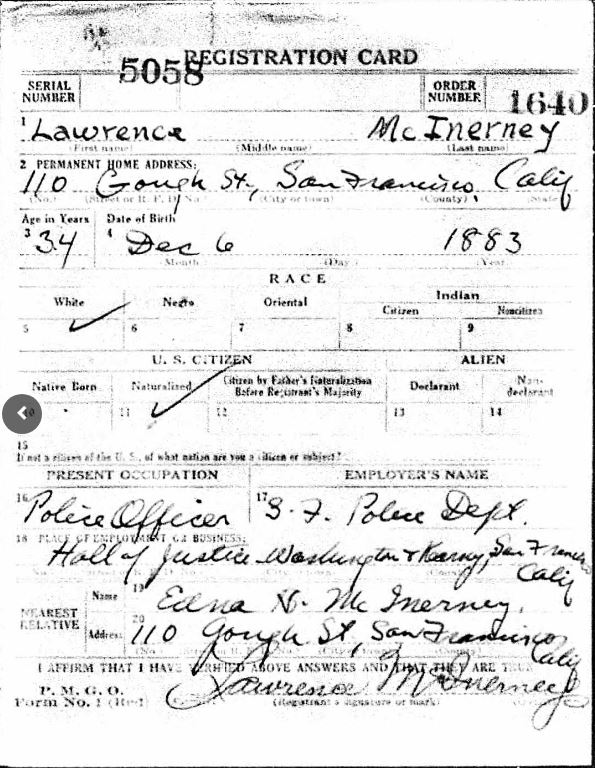 5058
REGISTRATION CARD
SERIAL NUMBER
ORDER NUMBER 1640
1 Lawrence McInerney
(First name) (Middle name) (Last name)
2 PERMANENT HOME ADDRESS:
110 Gough St., San Francisco Calif
(No.) (Street or R. F. D. No.) (City or town) (County) (State)
Age in Years Date of Birth
3 34 4 Dec 6 1883
(Month) (Day) (Year)
RACE
White Negro Oriental Indian
Citizen Noncitizen
5 6 7 8 9
U. S. CITIZEN ALIEN
Native Born Naturalized Citizen by Father's Naturalization Before Registrant's Majority Declarant Non-declarant
10 11 12 13 14
15
If not a citizen of the U. S., of what nation are you a citizen or subject?
PRESENT OCCUPATION EMPLOYER'S NAME
16 Police Officer 17 S. F. Police Dept.
18 PLACE OF EMPLOYMENT OR BUSINESS:
Hall of Justice Washington & Kearny, San Francisco
Calif
NEAREST RELATIVE
Name 19 Edna N. McInerney.
Address 20 110 Gough St, San Francisco
Calif
I AFFIRM THAT I HAVE VERIFIED ABOVE ANSWERS AND THAT THEY ARE TRUE
P. M. G. O.
Form No. 1 (Red) Lawrence McInerney
(Registrant's signature or mark)